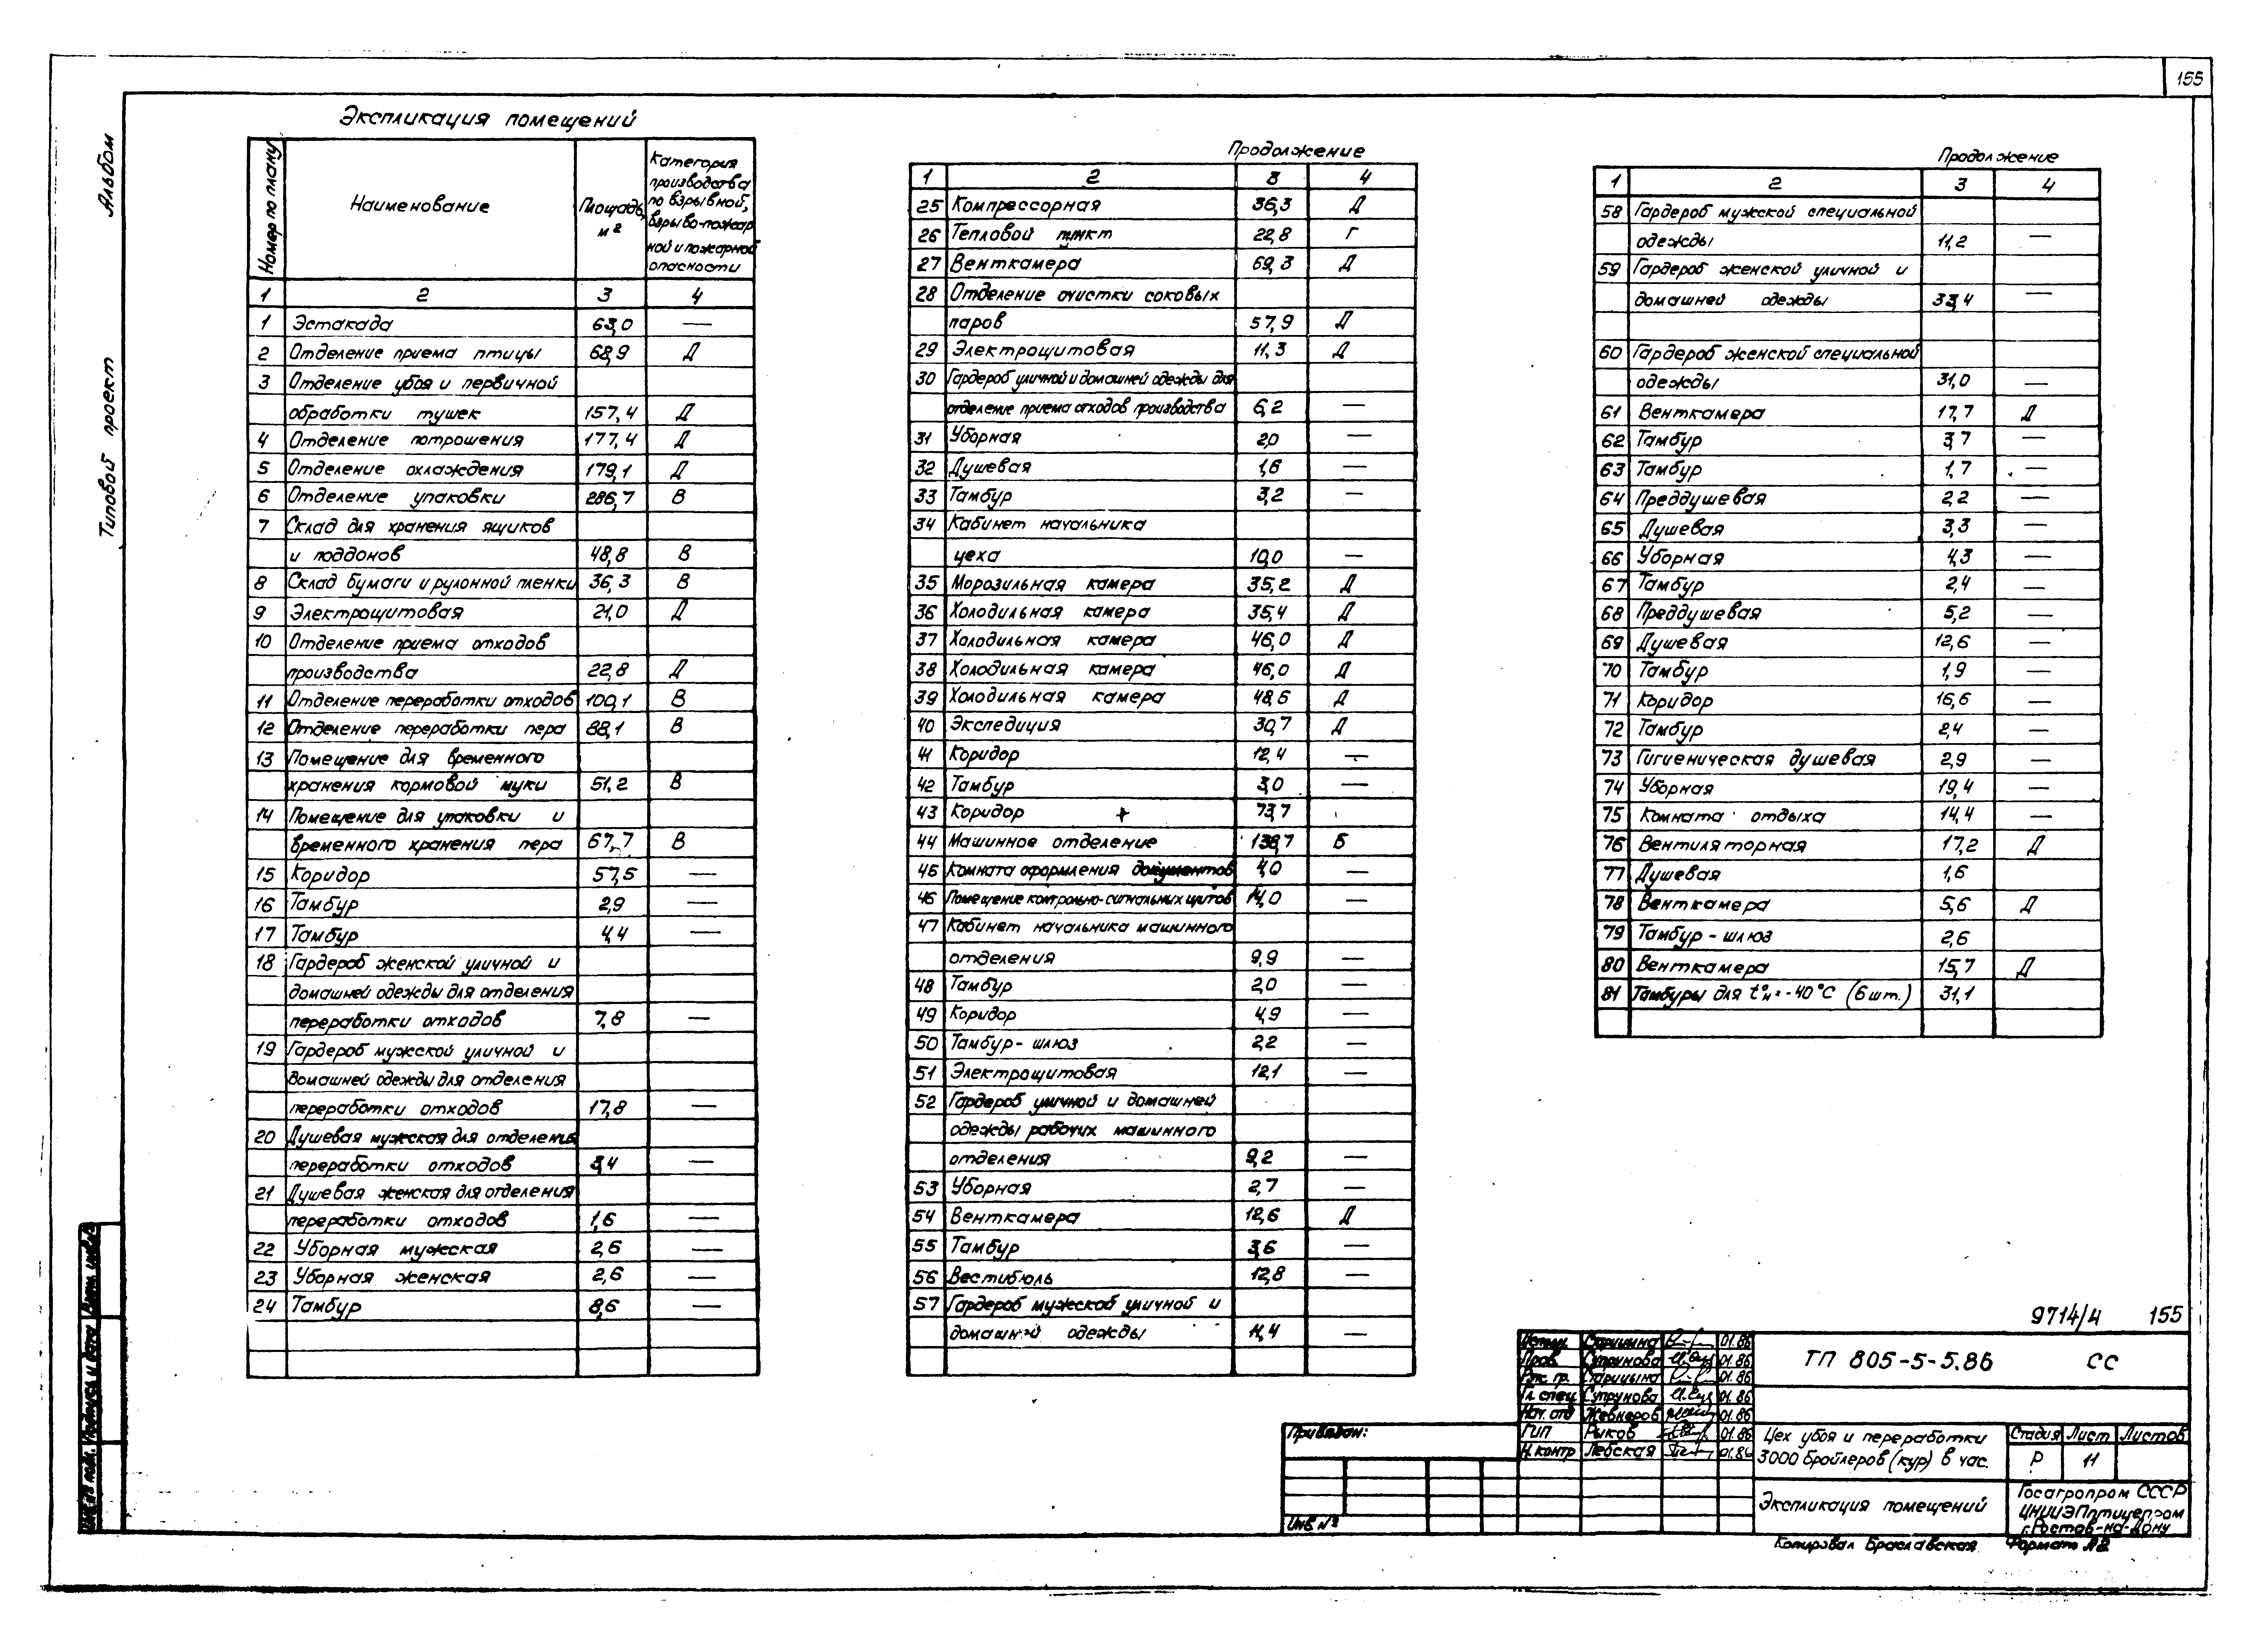 155
Альбом
Типовой проект
Экспликация помещений
Номер по плану
Наименование
Площадь, м²
Категория
производства
по взрывной,
взрыво-пожар
ной и пожарной
опасности
1 2 3 4
1 Эстакада 63,0 —
2 Отделение приема птицы 68,9 Д
3 Отделение убоя и первичной
обработки тушек 157,4 Д
4 Отделение потрошения 177,4 Д
5 Отделение охлаждения 179,1 Д
6 Отделение упаковки 286,7 В
7 Склад для хранения ящиков
и поддонов 48,8 В
8 Склад бумаги и рулонной пленки 36,3 В
9 Электрощитовая 21,0 Д
10 Отделение приема отходов
производства 22,8 Д
11 Отделение переработки отходов 100,1 В
12 Отделение переработки пера 88,1 В
13 Помещение для временного
хранения кормовой муки 51,2 В
14 Помещение для упаковки и
временного хранения пера 67,7 В
15 Коридор 57,5 —
16 Тамбур 2,9 —
17 Тамбур 4,4 —
18 Гардероб женской уличной и
домашней одежды для отделения
переработки отходов 7,8 —
19 Гардероб мужской уличной и
домашней одежды для отделения
переработки отходов 17,8 —
20 Душевая мужская для отделения
переработки отходов 3,4 —
21 Душевая женская для отделения
переработки отходов 1,6 —
22 Уборная мужская 2,6 —
23 Уборная женская 2,6 —
24 Тамбур 8,6 —
Продолжение
1 2 3 4
25 Компрессорная 36,3 Д
26 Тепловой пункт 22,8 Г
27 Венткамера 69,3 Д
28 Отделение очистки соковых
паров 57,9 Д
29 Электрощитовая 11,3 Д
30 Гардероб уличной и домашней одежды для
отделение приема отходов производства 6,2 —
31 Уборная 2,0 —
32 Душевая 1,6 —
33 Тамбур 3,2 —
34 Кабинет начальника
цеха 10,0 —
35 Морозильная камера 35,2 Д
36 Холодильная камера 35,4 Д
37 Холодильная камера 46,0 Д
38 Холодильная камера 46,0 Д
39 Холодильная камера 48,6 Д
40 Экспедиция 30,7 Д
41 Коридор 12,4 —
42 Тамбур 3,0 —
43 Коридор 73,7
44 Машинное отделение 138,7 Б
45 Комната оформления документов 4,0 —
46 Помещение контрольно-сигнальных щитов 14,0 —
47 Кабинет начальника машинного
отделения 9,9 —
48 Тамбур 2,0 —
49 Коридор 4,9 —
50 Тамбур-шлюз 2,2 —
51 Электрощитовая 12,1 —
52 Гардероб уличной и домашней
одежды рабочих машинного
отделения 9,2 —
53 Уборная 2,7 —
54 Венткамера 12,6 Д
55 Тамбур 3,6 —
56 Вестибюль 12,8 —
57 Гардероб мужской уличной и
домашней одежды 11,4 —
Продолжение
1 2 3 4
58 Гардероб мужской специальной
одежды 11,2 —
59 Гардероб женской уличной и
домашней одежды 33,4 —
60 Гардероб женской специальной
одежды 31,0 —
61 Венткамера 17,7 Д
62 Тамбур 3,7 —
63 Тамбур 1,7 —
64 Преддушевая 2,2 —
65 Душевая 3,3 —
66 Уборная 4,3 —
67 Тамбур 2,4 —
68 Преддушевая 5,2 —
69 Душевая 12,6 —
70 Тамбур 1,9 —
71 Коридор 16,6 —
72 Тамбур 2,4 —
73 Гигиеническая душевая 2,9 —
74 Уборная 19,4 —
75 Комната отдыха 14,4 —
76 Вентиляторная 17,2 Д
77 Душевая 1,6
78 Венткамера 5,6 Д
79 Тамбур-шлюз 2,6
80 Венткамера 15,7 Д
81 Тамбуры для tн°=-40°С (6 шт.) 31,1
9714/4 155
Старицына 01.86
Пров. Супрунова 01.86
Рук. гр. Старицына 01.86
Гл. спец Супрунова 01.86
Нач. отд Жевнеров 01.86
ГИП Рыков 01.86
Н. контр Лебская 01.86
ТП 805-5-5.86 СС
Цех убоя и переработки
3000 бройлеров (кур) в час.
Стадия Лист Листов
Р 11
Экспликация помещений
Госагропром СССР
ЦНИИЭПптицепром
г. Ростов-на-Дону
Привязан:
Инв №
Копировал Браславская Формат А2
Инв. № подл. Подпись и дата Взам. инв. №